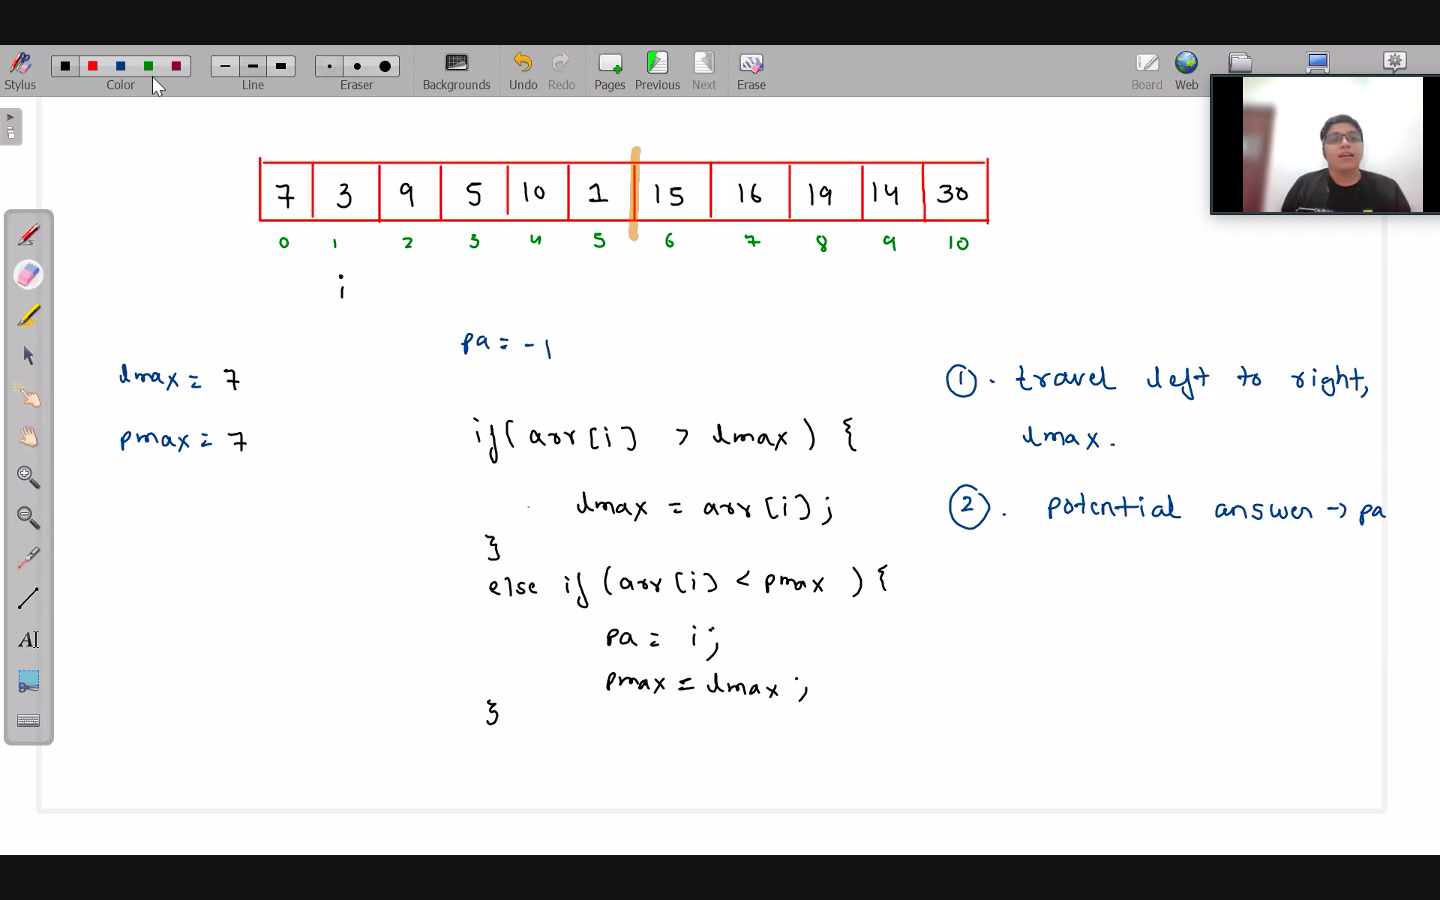 Stylus
Color
Line
Eraser
Backgrounds
Undo Redo
Pages Previous Next
Erase
Board Web
7 3 9 5 10 1 15 16 19 14 30
0 1 2 3 4 5 6 7 8 9 10
i
pa = -1
lmax = 7
pmax = 7
if(arr[i] > lmax) {
lmax = arr[i];
}
else if (arr[i] < pmax) {
pa = i;
pmax = lmax;
}
1. travel left to right,
lmax.
2. potential answer → pa
AI